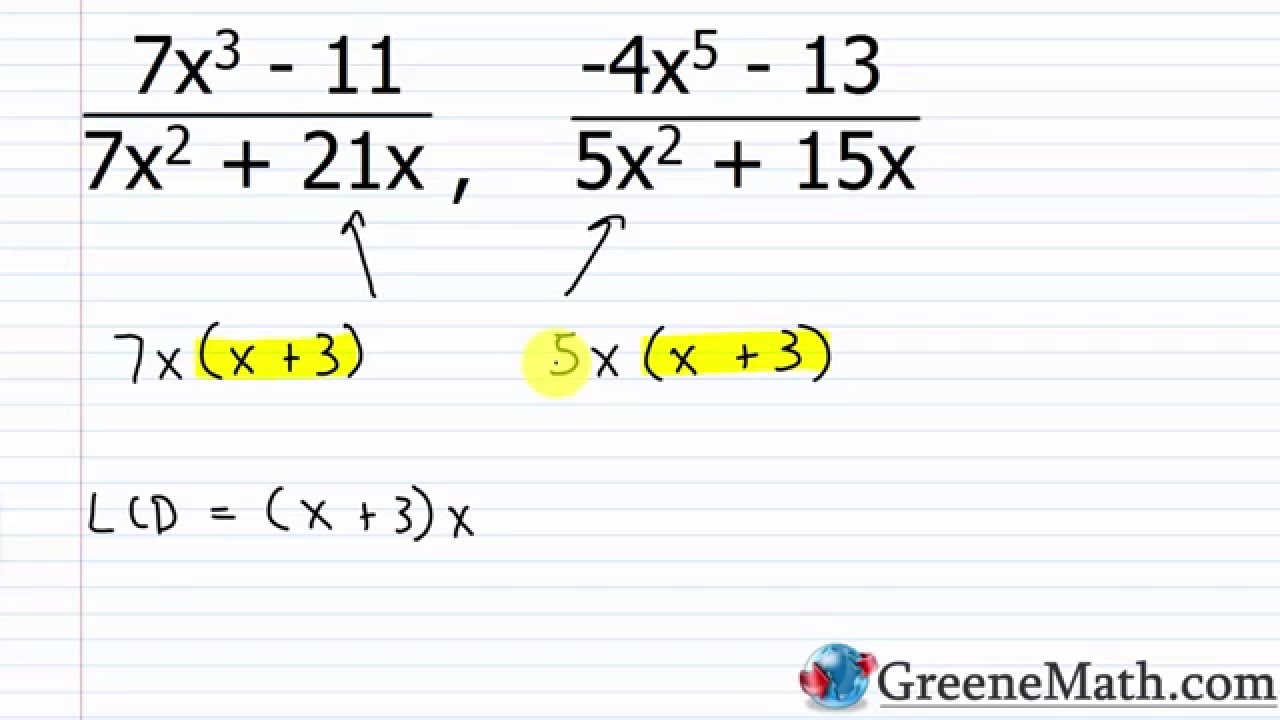 7x³ - 11 -4x⁵ - 13
7x² + 21x , 5x² + 15x
7x (x + 3) 5x (x + 3)
LCD = (x + 3) x
GreeneMath.com